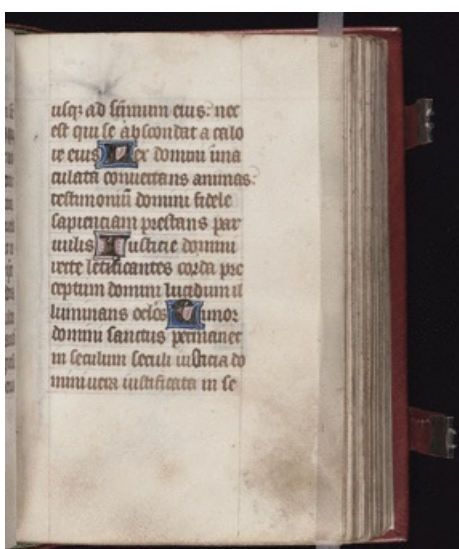 usq; ad sūmum eius: nec
est qui se abscondat a calo
re eius Lex domini inma
culata convertans animas:
testimoniū domini fidele
sapienciam prestans par
vulis Iusticie domini
recte letificantes corda pre
ceptum domini lucidum il
luminans oclōs Timor
domini sanctus permanet
in seculum seculi iudicia do
mini vera iustificata in se